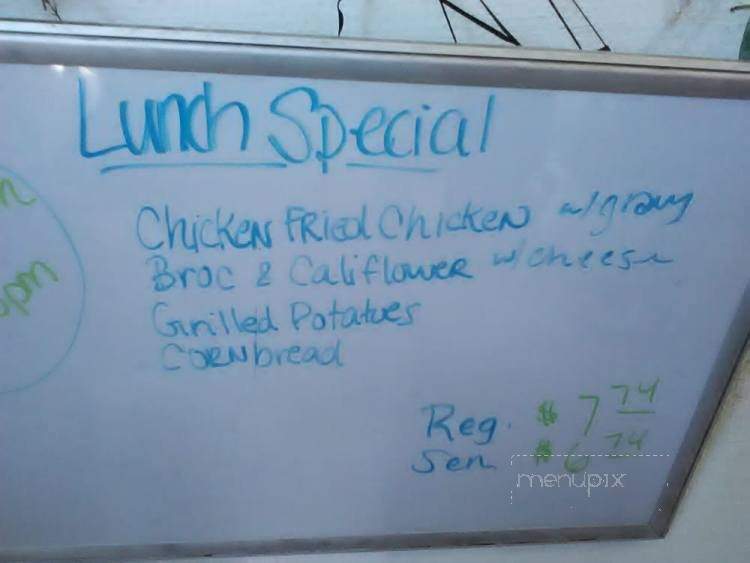 Lunch Special
Chicken Fried Chicken w/gravy
Broc & Califlower w/cheese
Grilled Potatoes
Cornbread
pm
Reg. $7 74
Sen $6 74
menupix